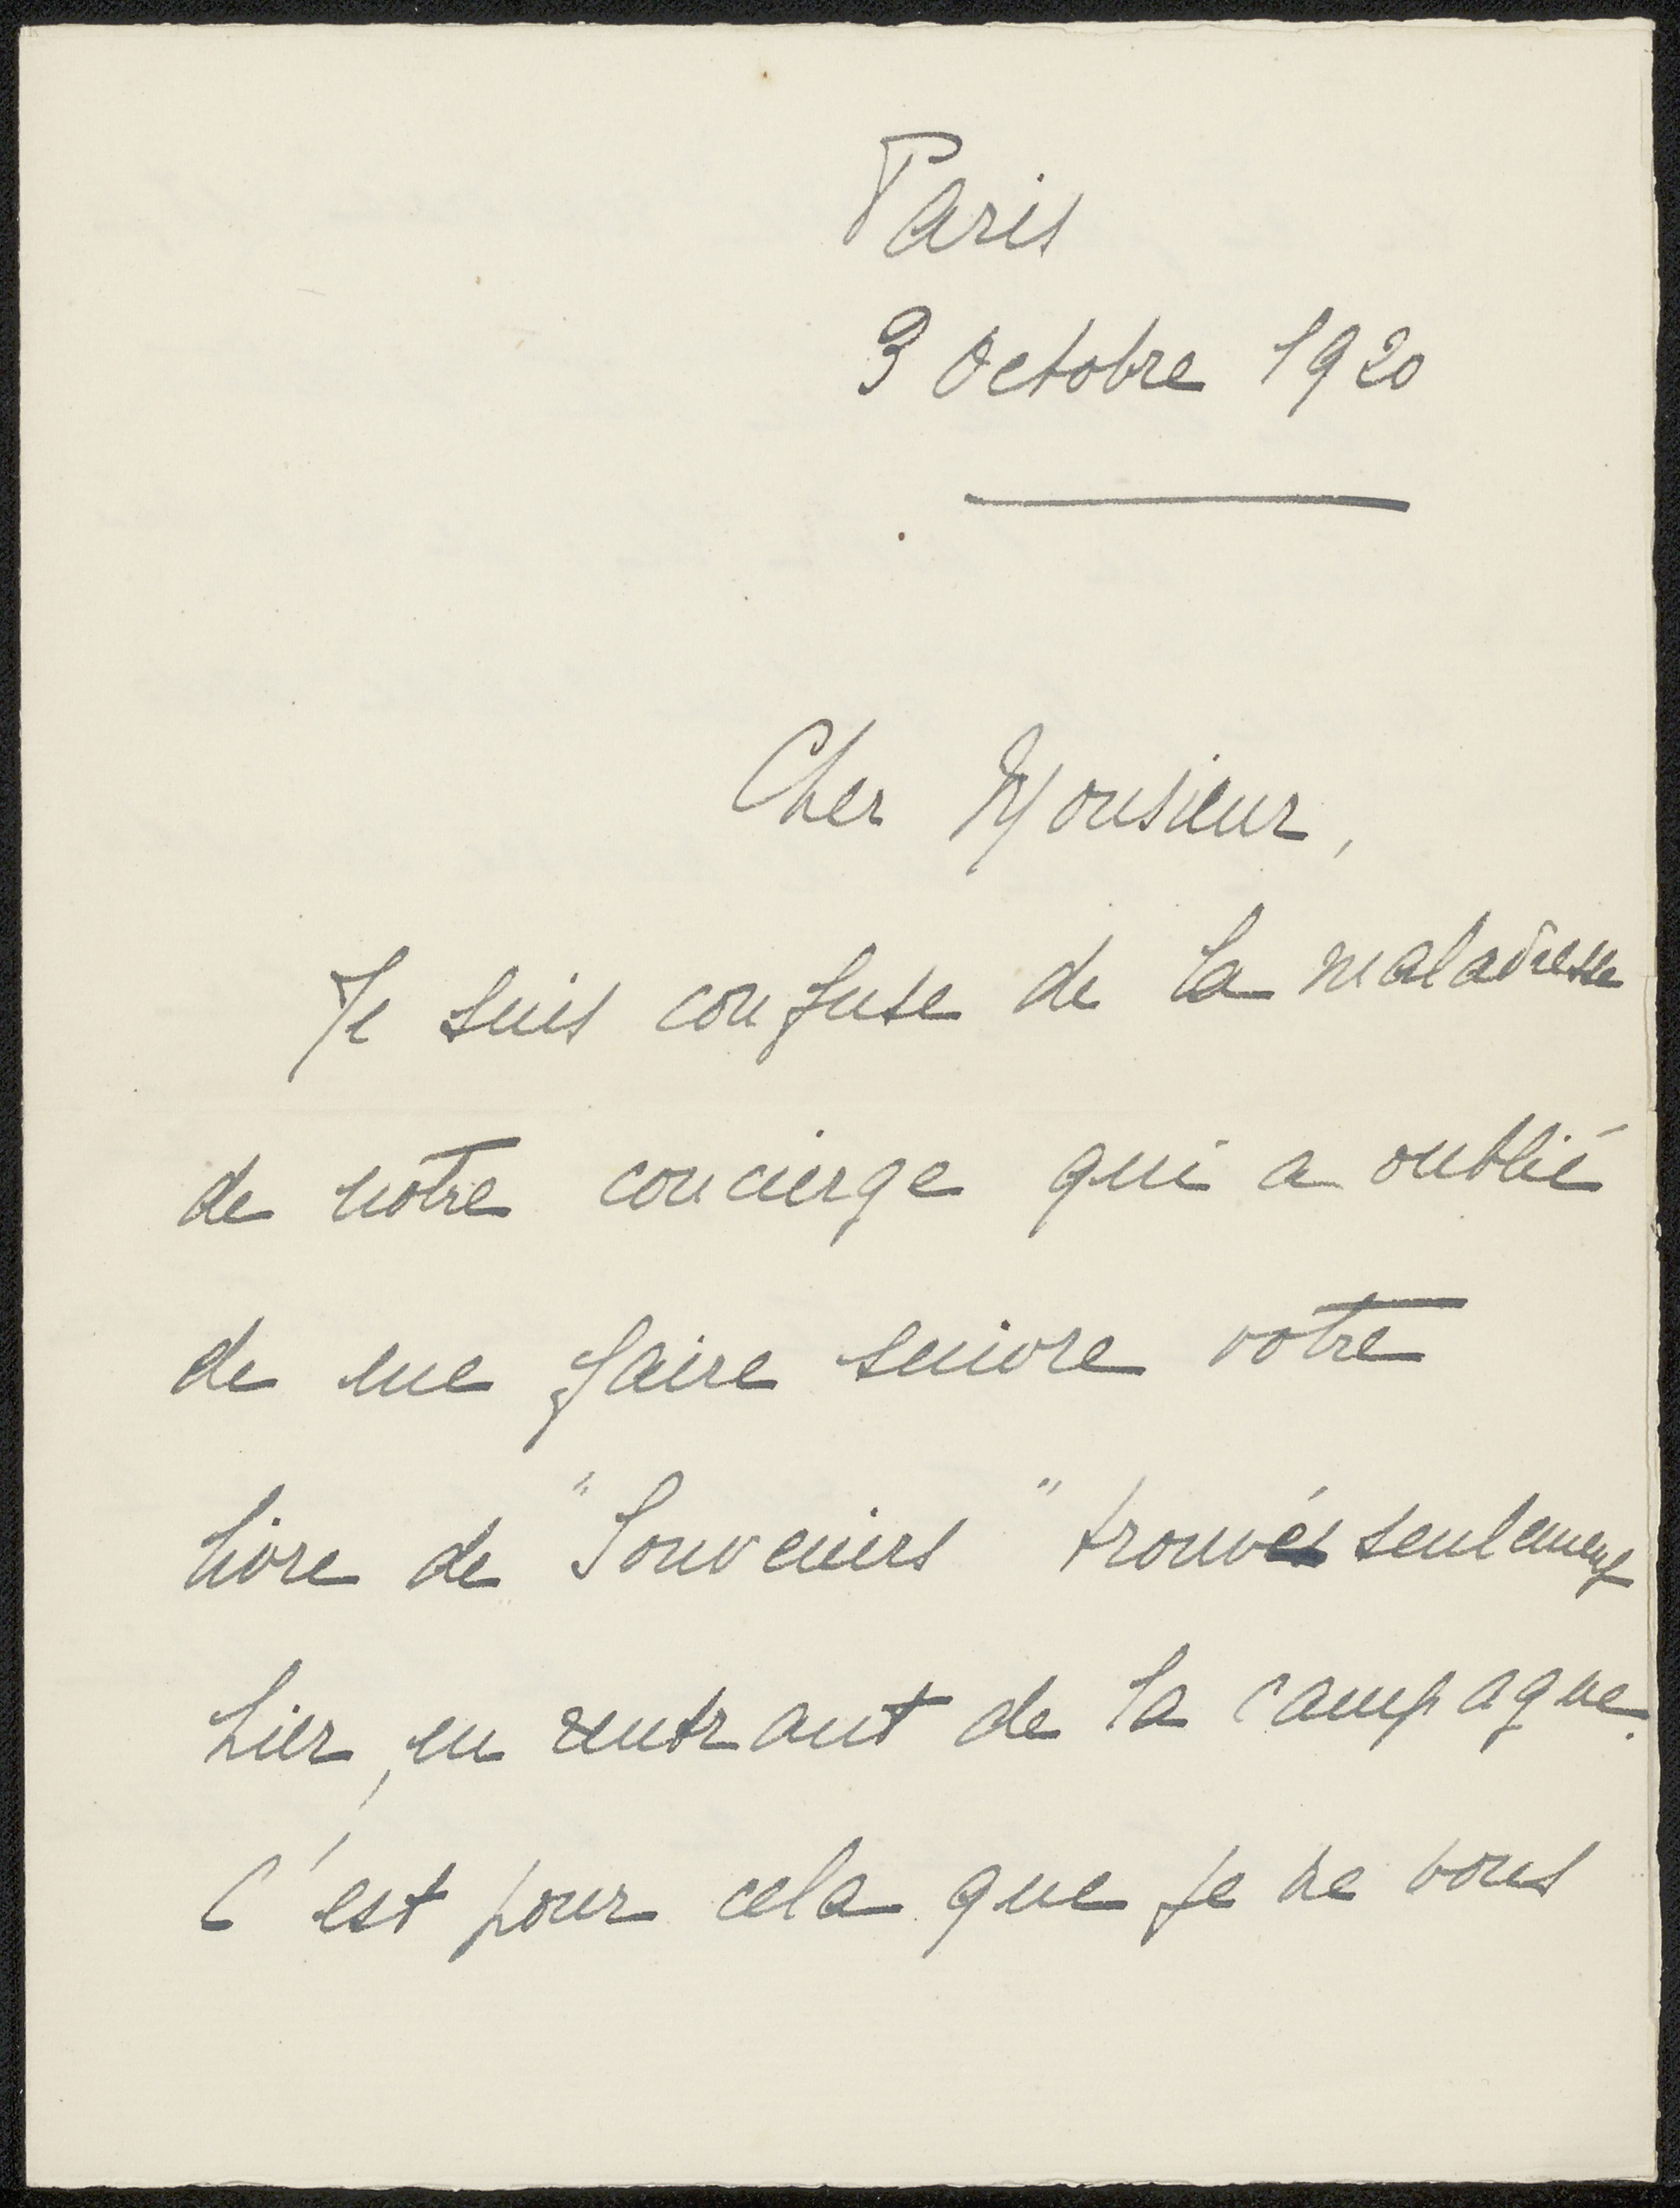 Paris
3 Octobre 1920
Cher Monsieur,
Je suis confuse de la maladresse
de notre concierge qui a oublié
de me faire suivre votre
livre de "Souvenirs" trouvés seulement
hier, en rentrant de la campagne.
C'est pour cela que je ne vous